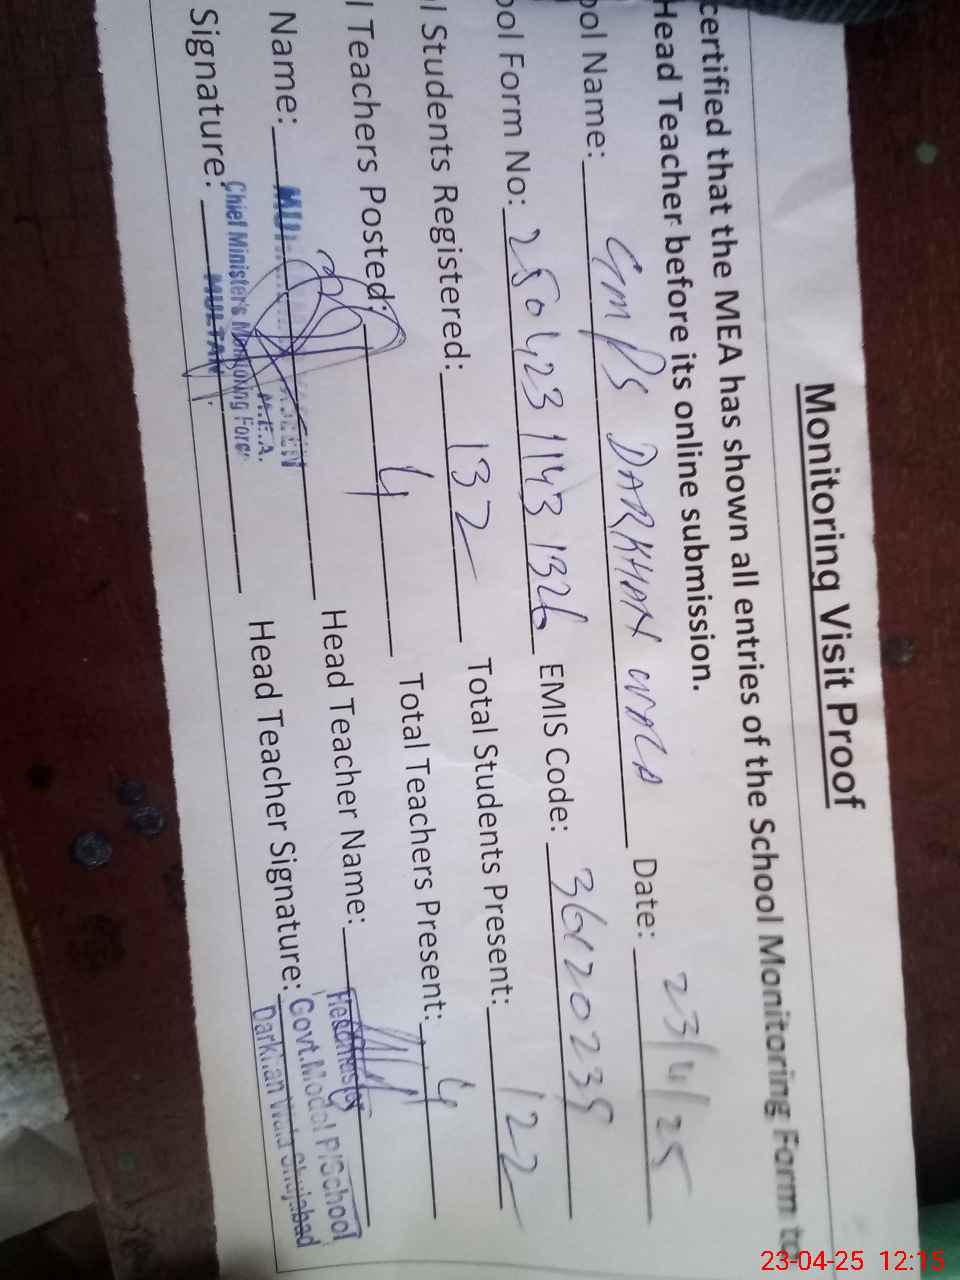 Monitoring Visit Proof
certified that the MEA has shown all entries of the School Monitoring Form to
Head Teacher before its online submission.
ool Name: GMPS DARKHAN WALA Date: 23/4/25
ool Form No: 250423 1143 1326 EMIS Code: 36120239
l Students Registered: 132 Total Students Present: 122
l Teachers Posted: 4 Total Teachers Present: 4
Name: Head Teacher Name:
Signature: Head Teacher Signature:
M.E.A.
Chief Minister's Monitoring Force
MULTAN
Headmaster
Govt. Model P/School
Darkhan Wala Shujabad
23-04-25 12:15